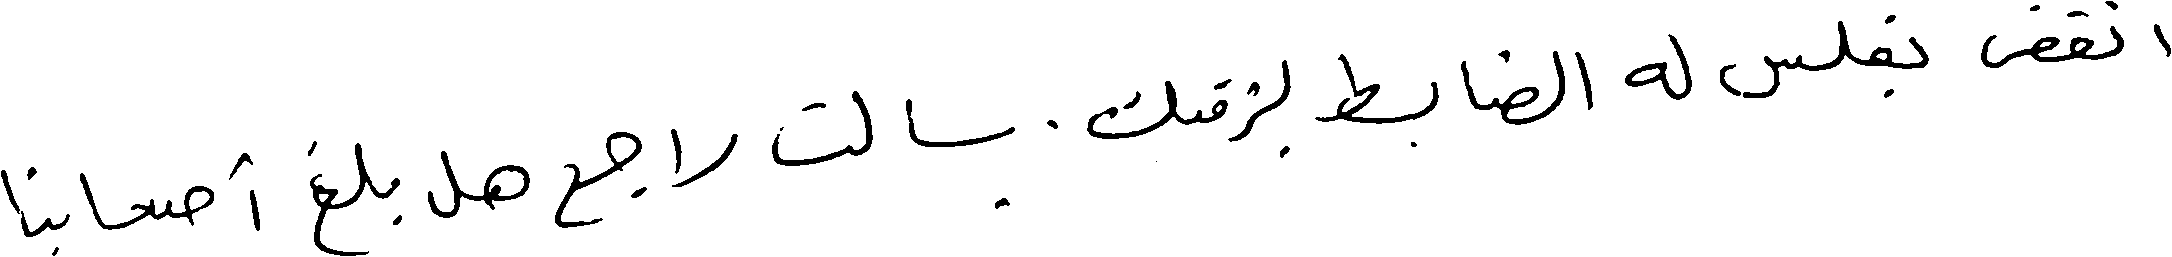 انقض بفلس له الضابط بزقك . بسالت راجع هل بلغ أصحابنا